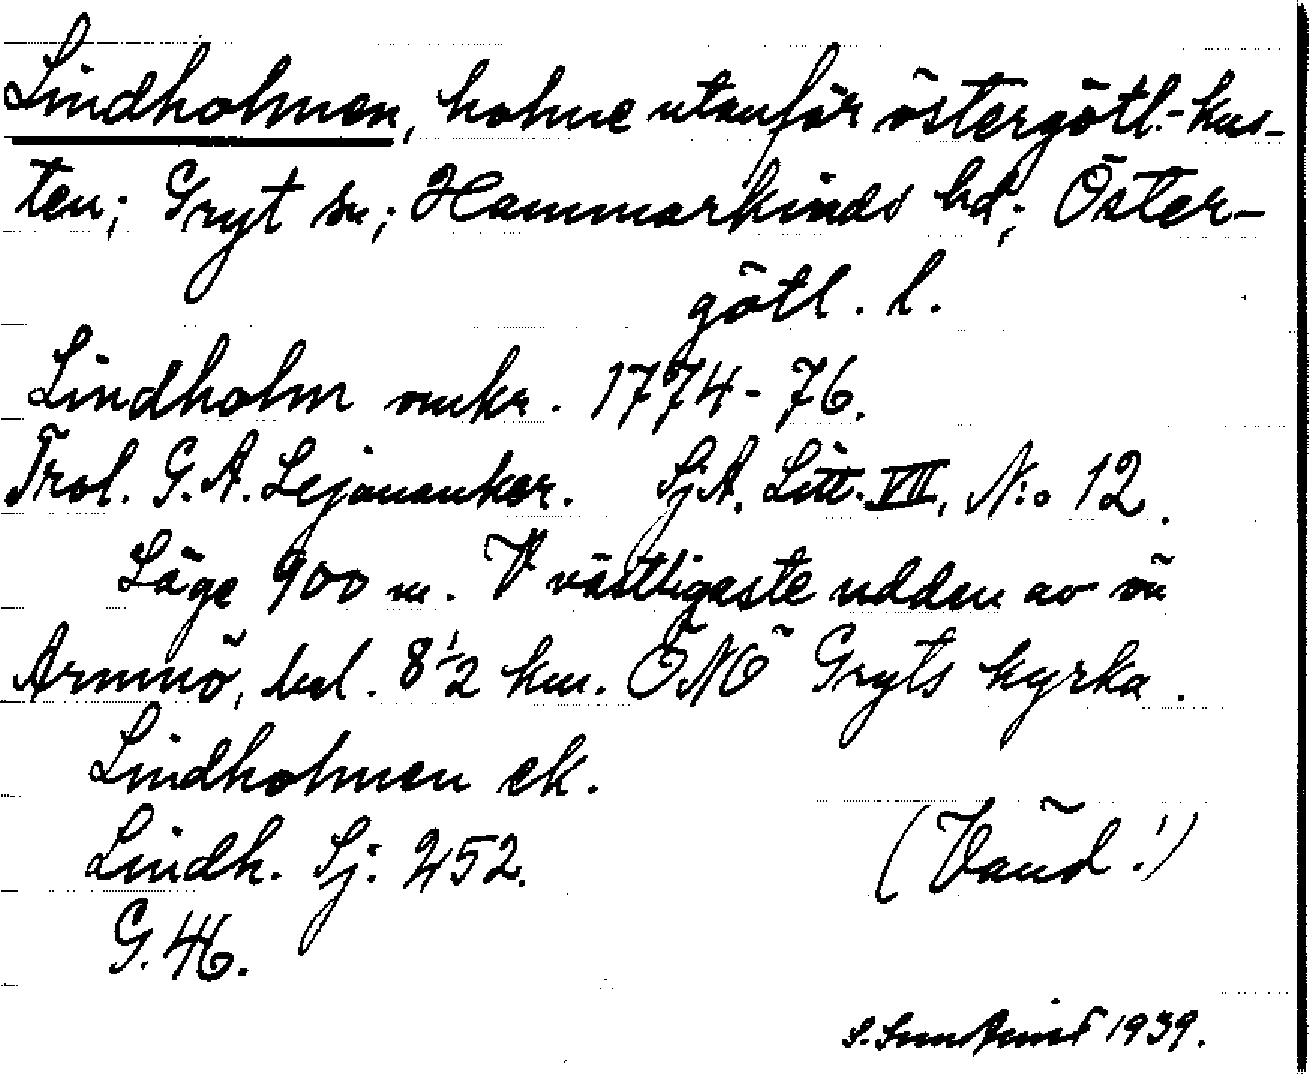 Lindholmen, holme utanför östergötl.-kus-
ten; Gryt sn; Hammarkinds hd; Öster-
götl. l.
Lindholm omkr. 1774-76.
Trol. G. A. Lejonanker. SjA. Litt. VII, N:o 12.
Läge 900 m. V västligaste udden av ön
Armnö, bel. 8 1/2 km. ÖNÖ Gryts kyrka.
Lindholmen ek.
Lindh. Sj. 252.
(Vänd!)
G. 46.
1939.